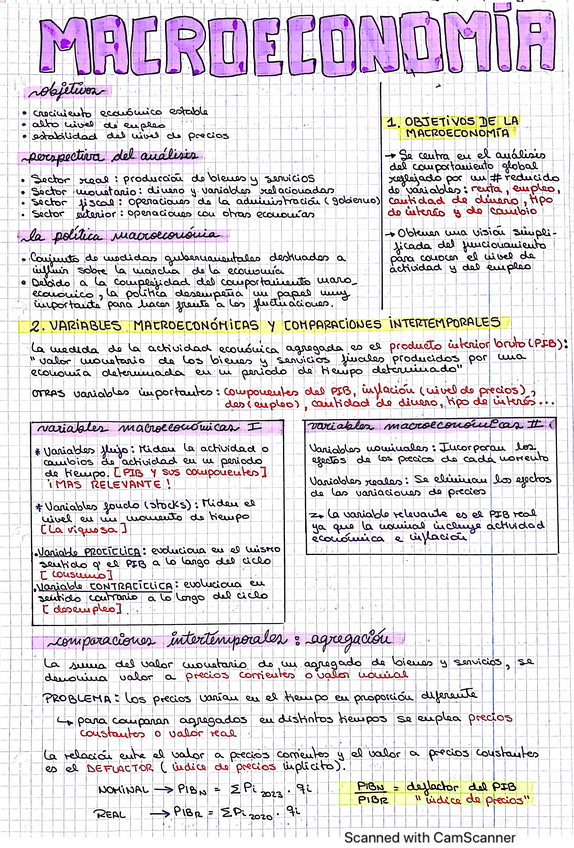 MACROECONOMÍA
objetivos
• crecimiento económico estable
• alto nivel de empleo
• estabilidad del nivel de precios
perspectiva del análisis
• Sector real: producción de bienes y servicios
• Sector monetario: dinero y variables relacionadas
• Sector fiscal: operaciones de la administración (gobierno)
• Sector exterior: operaciones con otras economías
la política macroeconómia
• Conjunto de medidas gubernamentales destinados a
influir sobre la marcha de la economía
• Debido a la complejidad del comportamiento macro-
economico, la política desempeña un papel muy
importante para hacer frente a las fluctuaciones.
1. OBJETIVOS DE LA
MACROECONOMÍA
→ Se centra en el análisis
del comportamiento global
reflejado por un # reducido
de variables: renta, empleo,
cantidad de dinero, tipo
de interés y de cambio
→ Obtener una visión simpli-
ficada del funcionamiento
para conocer el nivel de
actividad y del empleo
2. VARIABLES MACROECONÓMICAS Y COMPARACIONES INTERTEMPORALES
La medida de la actividad económica agregada es el producto interior bruto (PIB):
"valor monetario de los bienes y servicios finales producidos por una
economía determinada en un periodo de tiempo determinado"
OTRAS variables importantes: componentes del PIB, inflación (nivel de precios),
des(empleo), cantidad de dinero, tipo de interés...
variables macroeconómicas I
* Variables flujo: Miden la actividad o
cambios de actividad en un periodo
de tiempo. [PIB y sus componentes]
¡MAS RELEVANTE!
* Variables fondo (stocks): Miden el
nivel en un momento de tiempo
[La riqueza]
• Variable PROCÍCLICA: evoluciona en el mismo
sentido q' el PIB a lo largo del ciclo
[consumo]
• Variable CONTRACÍCLICA: evoluciona en
sentido contrario a lo largo del ciclo
[desempleo]
variables macroeconómicas II
Variables nominales: Incorporan los
efectos de los precios de cada momento
Variables reales: Se eliminan los efectos
de las variaciones de precios
↳ La variable relevante es el PIB real
ya que la nominal incluye actividad
económica e inflación
comparaciones intertemporales: agregación
La suma del valor monetario de un agregado de bienes y servicios, se
denomina valor a precios corrientes o valor nominal
PROBLEMA: los precios varían en el tiempo en proporción diferente
↳ para comparar agregados en distintos tiempos se emplea precios
constantes o valor real
La relación entre el valor a precios corrientes y el valor a precios constantes
es el DEFLACTOR (índice de precios implícito).
NOMINAL → PIBN = ΣPi 2023 · qi
REAL → PIBR = ΣPi 2020 · qi
PIBN = deflactor del PIB
PIBR "índice de precios"
Scanned with CamScanner